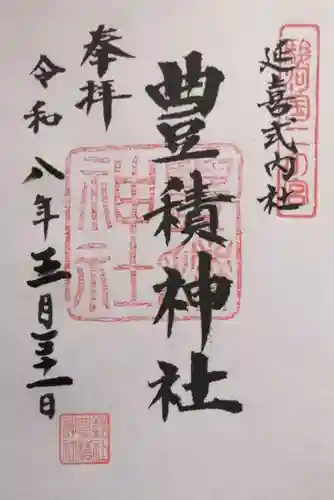 延喜式内社
豊積神社
奉拝
令和八年三月三十一日